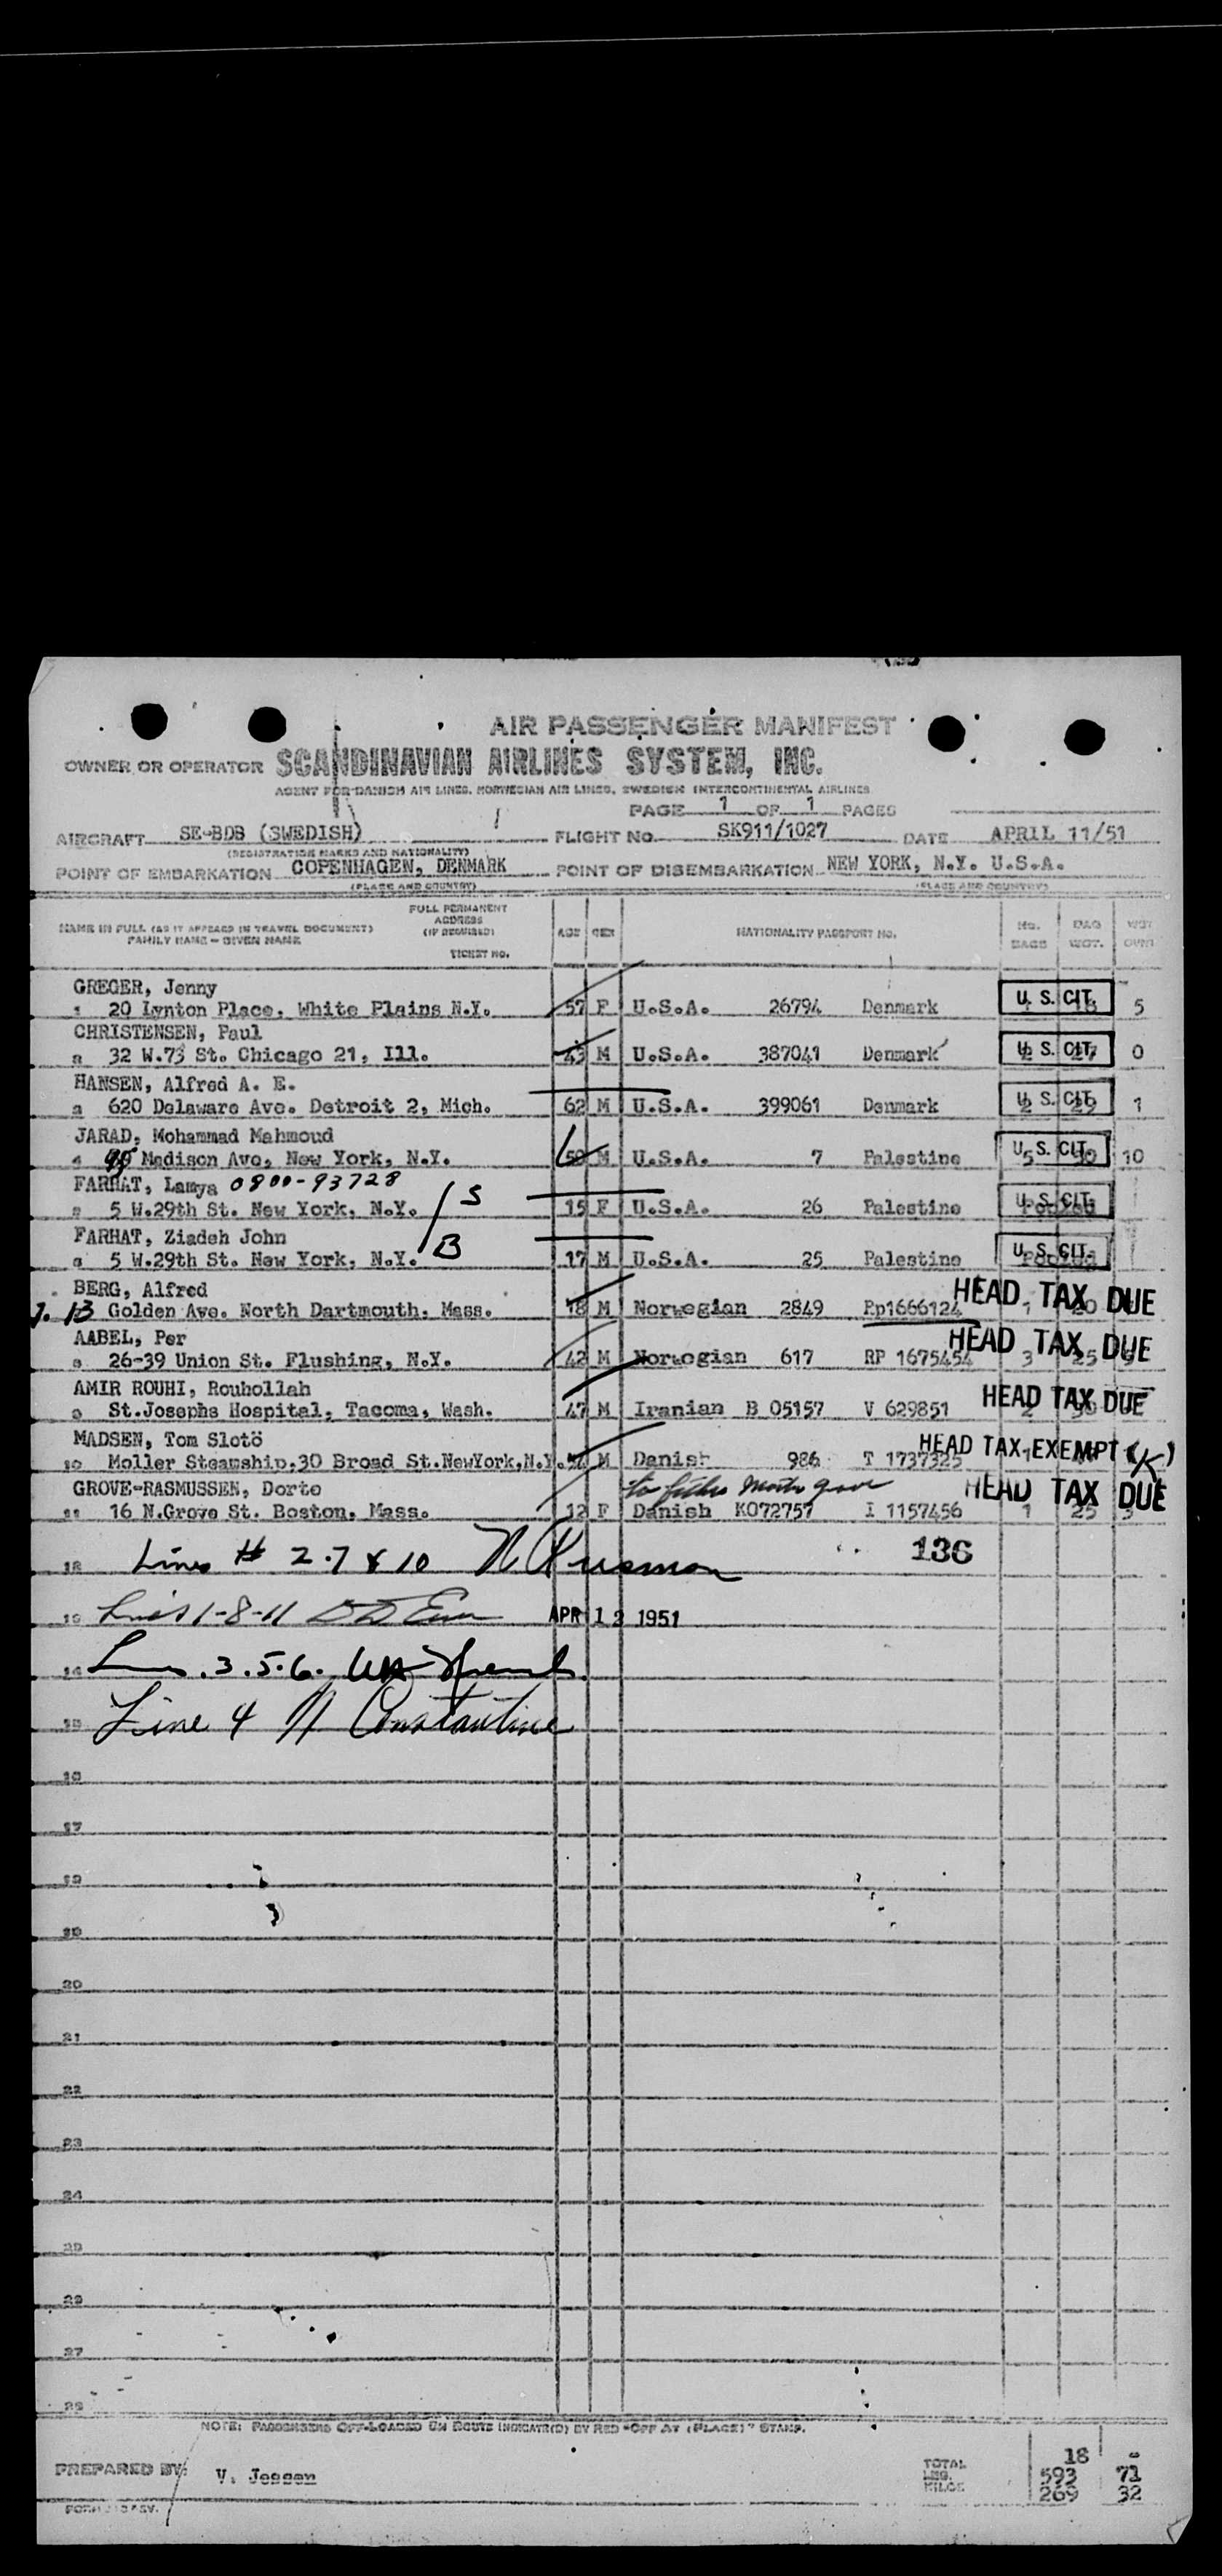 AIR PASSENGER MANIFEST
OWNER OR OPERATOR SCANDINAVIAN AIRLINES SYSTEM, INC.
AGENT FOR DANISH AIR LINES, NORWEGIAN AIR LINES, SWEDISH INTERCONTINENTAL AIRLINES
PAGE 1 OF 1 PAGES
AIRCRAFT SE-BDB (SWEDISH) FLIGHT No. SK911/1027 DATE APRIL 11/51
(REGISTRATION MARKS AND NATIONALITY)
POINT OF EMBARKATION COPENHAGEN, DENMARK POINT OF DISEMBARKATION NEW YORK, N.Y. U.S.A.
(PLACE AND COUNTRY) (PLACE AND COUNTRY)
NAME IN FULL (AS IT APPEARS IN TRAVEL DOCUMENT) FAMILY NAME - GIVEN NAME FULL PERMANENT ADDRESS (IF REQUIRED) TICKET NO. AGE SEX NATIONALITY PASSPORT NO. No. BAGS BAG WGT.
GREGER, Jenny
1 20 Lynton Place, White Plains N.Y. 57 F U.S.A. 26794 Denmark U. S. CIT. 5
CHRISTENSEN, Paul
32 W.73 St. Chicago 21, Ill. 43 M U.S.A. 387041 Denmark U. S. CIT. 0
HANSEN, Alfred A. E.
620 Delaware Ave. Detroit 2, Mich. 62 M U.S.A. 399061 Denmark U. S. CIT. 1
JARAD, Mohammad Mahmoud
Madison Ave, New York, N.Y. 50 M U.S.A. 7 Palestine U. S. CIT. 10
FARHAT, Lamya 0800-93728
5 W.29th St. New York, N.Y. S 15 F U.S.A. 26 Palestine U. S. CIT.
FARHAT, Ziadeh John
5 W.29th St. New York, N.Y. B 17 M U.S.A. 25 Palestine U. S. CIT.
BERG, Alfred
7. 13 Golden Ave. North Dartmouth, Mass. 18 M Norwegian 2849 Rp1666124 HEAD TAX DUE
AABEL, Per
26-39 Union St. Flushing, N.Y. 42 M Norwegian 617 RP 1675454 3 25 HEAD TAX DUE
AMIR ROUHI, Rouhollah
St.Josephs Hospital, Tacoma, Wash. 47 M Iranian B 05157 V 629851 HEAD TAX DUE
MADSEN, Tom Slotö
10 Moller Steamship.30 Broad St.NewYork,N.Y. M Danish 986 T 1737325 HEAD TAX EXEMPT (K)
GROVE-RASMUSSEN, Dorte to father
11 16 N.Grove St. Boston, Mass. 12 F Danish K072757 I 1157456 1 25 HEAD TAX DUE
12 Lines # 2.7 & 10 136
Lines 1-8-11 APR 12 1951
14 .3.5.6.
15 Line 4 N Constantine
16
17
20
21
22
23
24
27
NOTE: PASSENGERS OFF-LOADED EN ROUTE INDICATE(D) BY RED "OFF AT (PLACE)" STAMP.
PREPARED BY: V. Jessen
TOTAL 18 -
LBS. 593 71
KILOS 269 32